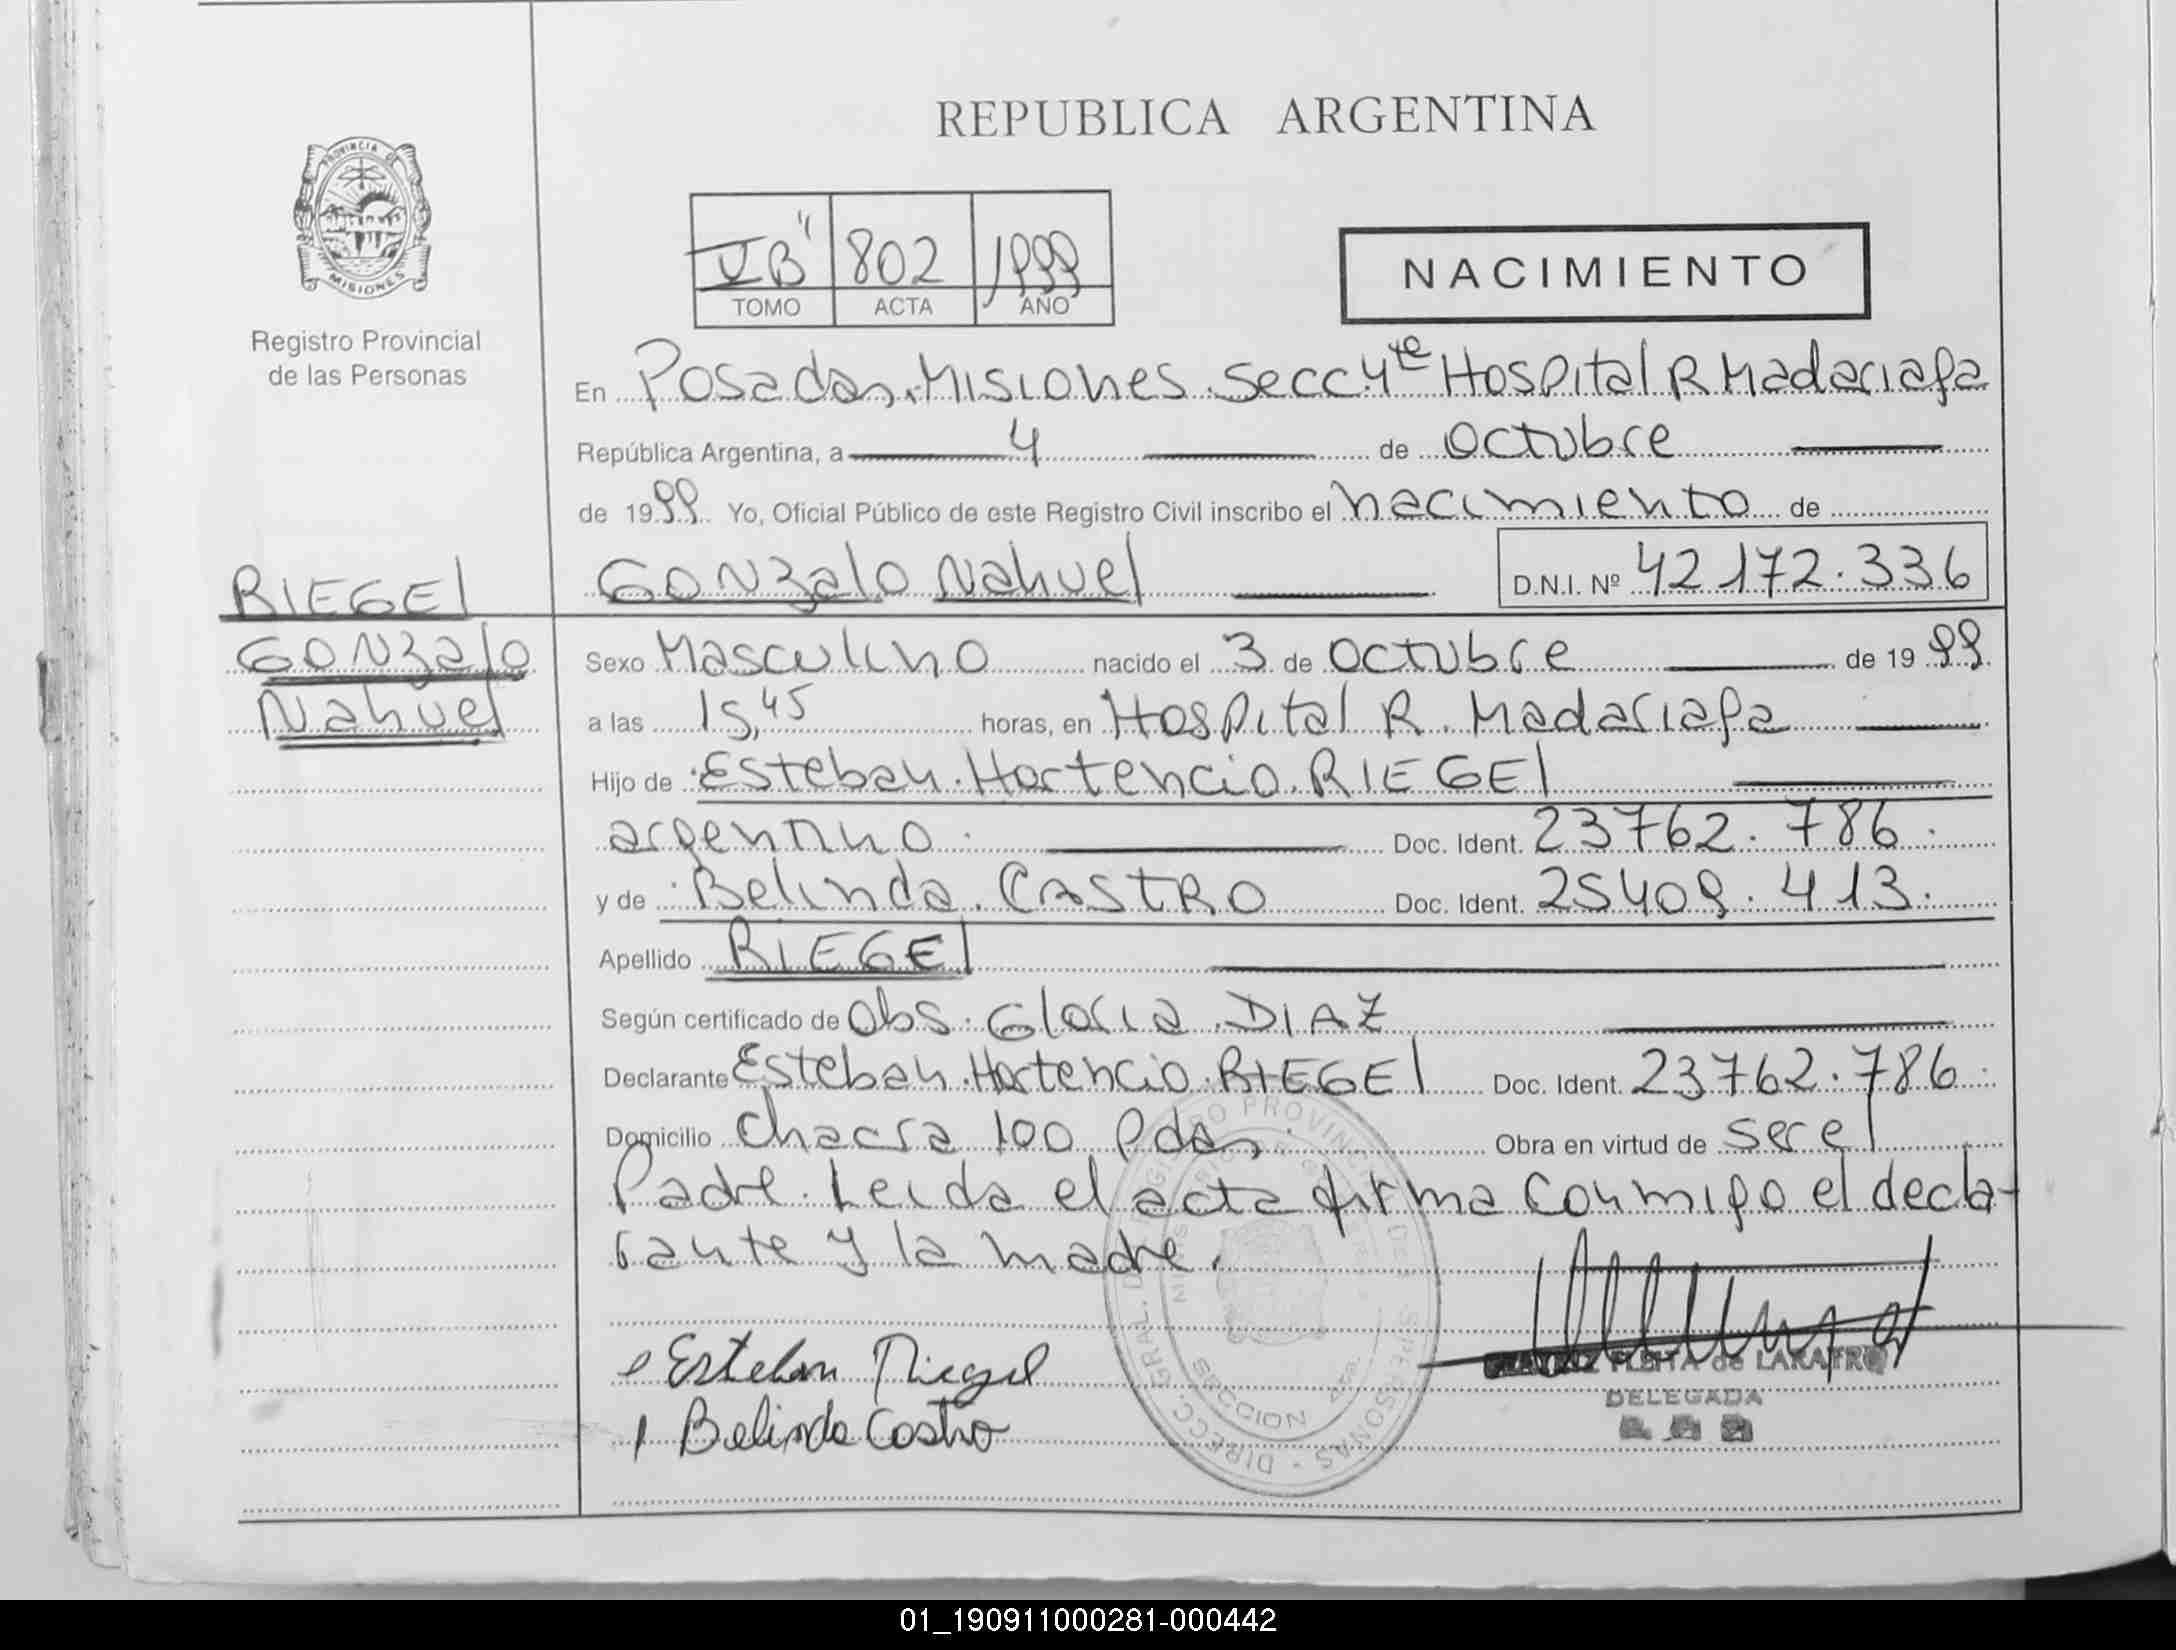 REPUBLICA ARGENTINA
PROVINCIA DE
MISIONES
Registro Provincial
de las Personas
802 1999
TOMO ACTA AÑO
NACIMIENTO
En Posadas, Misiones Secc 4te Hospital R Madariaga
República Argentina, a 4 de Octubre
de 1999 Yo, Oficial Público de este Registro Civil inscribo el nacimiento de
RIEGEL
Gonzalo Nahuel D.N.I. Nº 42172.336
Gonzalo
Nahuel
Sexo Masculino nacido el 3 de Octubre de 1999
a las 15,45 horas, en Hospital R. Madariaga
Hijo de Esteban Hortencio RIEGEL
argentino Doc. Ident. 23762.786
y de Belinda CASTRO Doc. Ident. 25409.413
Apellido RIEGEL
Según certificado de Obs. Gloria DIAZ
Declarante Esteban Hortencio RIEGEL Doc. Ident. 23762.786
Domicilio Chacra 100 Pdas, Obra en virtud de ser el
Padre. Leida el acta firma conmigo el decla-
rante y la madre.
Esteban Riegel
Belinda Castro
de LAKATRO
DELEGADA
01_190911000281-000442